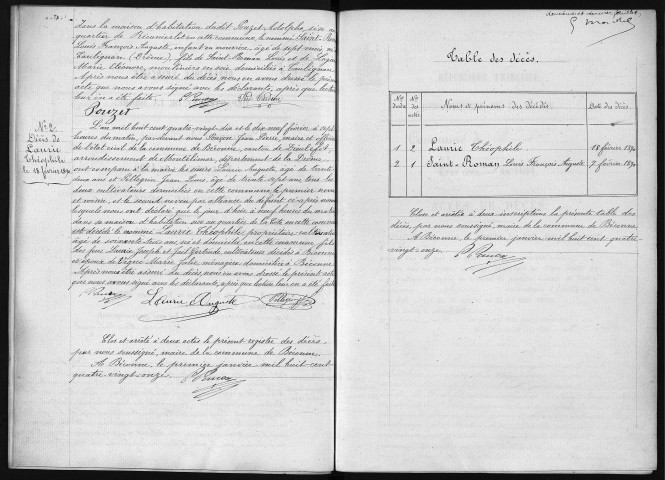 Dans la maison d'habitation dudit Pouzet Adolphe, sise au
quartier de en cette commune, le nommé Saint-Roman
Louis François Auguste, enfant en nourrice, âgé de sept mois, né à
Taulignan (Drôme), fils de Saint-Roman Louis et de
Marie Eléonore, mouliniers en soie, domiciliés à Taulignan.
Après nous être assuré du décès, nous en avons dressé le présent
acte que nous avons signé avec les déclarants, après que lecture
leur en a été faite.
Pouzet
N° 2
Décès de
Laurie
Théophile
le 18 février 1890
L'an mil huit cent quatre-vingt-dix et le dix neuf février à sept
heures du matin, par devant nous Jean Pierre, maire et officier
de l'état civil de la commune de Béconne, canton de Dieulefit,
arrondissement de Montélimar, département de la Drôme,
ont comparu à la mairie les sieurs Laurie Auguste, âgé de trente
deux ans et Pellegrin Jean Louis, âgé de trente sept ans, tous les
deux cultivateurs domiciliés en cette commune, le premier neveu
et voisin, et le second voisin par alliance du défunt ci-après nommé,
lesquels nous ont déclaré que le jour d'hier à neuf heures du matin
dans sa maison d'habitation sise au quartier de la en cette commune
est décédé le nommé Laurie Théophile, propriétaire cultivateur
âgé de soixante trois ans, né et domicilié en cette commune, fils
des feu Laurie Joseph et Gertrude, cultivateurs décédés à Béconne
et époux de Marie Julie, ménagère, domiciliée à Béconne.
Après nous être assuré du décès, nous en avons dressé le présent acte
que nous avons signé avec les déclarants, après que lecture leur en a été faite.
Laurie Auguste Pellegrin
Clos et arrêté à deux actes le présent registre des décès
par nous soussigné, maire de la commune de Béconne.
A Béconne, le premier janvier mil huit cent
quatre-vingt-onze.
Table des décès.
Nos d'ordre
Nos des actes
Noms et prénoms des décédés
Date des décès
1 2 Laurie Théophile 18 février 1890
2 1 Saint-Roman Louis François Auguste 7 février 1890
Clos et arrêté à deux inscriptions la présente table des
décès, par nous soussigné, maire de la commune de Béconne.
A Béconne, le premier janvier mil huit cent quatre-
vingt-onze.